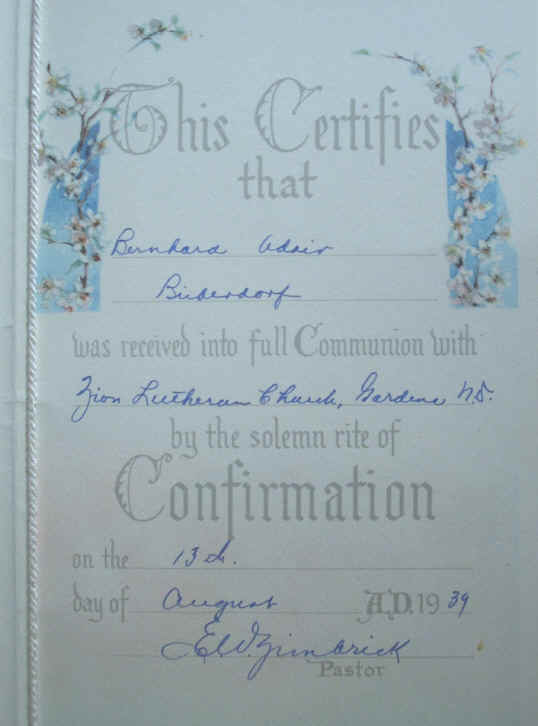 This Certifies
that
Bernhard Adair
Biederdorf
was received into full Communion with
Zion Lutheran Church, Gardena N.D.
by the solemn rite of
Confirmation
on the 13th.
day of August A.D. 1939
Pastor